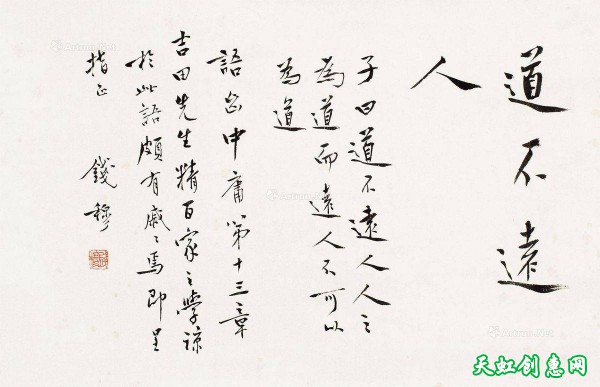 道不遠
人
子曰道不遠人人之
為道而遠人不可以
為道
語出中庸第十三章
吉田先生精百家之學諒
於此語頗有戚〻焉即呈
指正
錢穆
Artron.Net
天虹创惠网